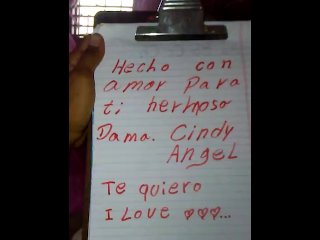 Hecho con
amor Para
ti hermoso
Dama. Cindy
Angel
Te quiero
I Love ♡♡♡...